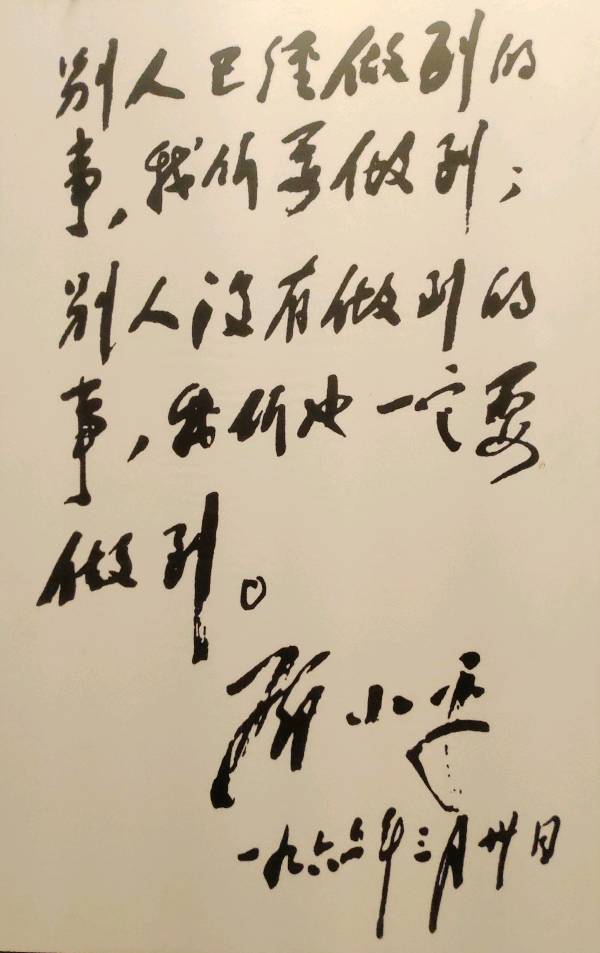 别人已经做到的
事，我们要做到；
别人没有做到的
事，我们也一定要
做到。
邓小平
一九六六年三月卅日